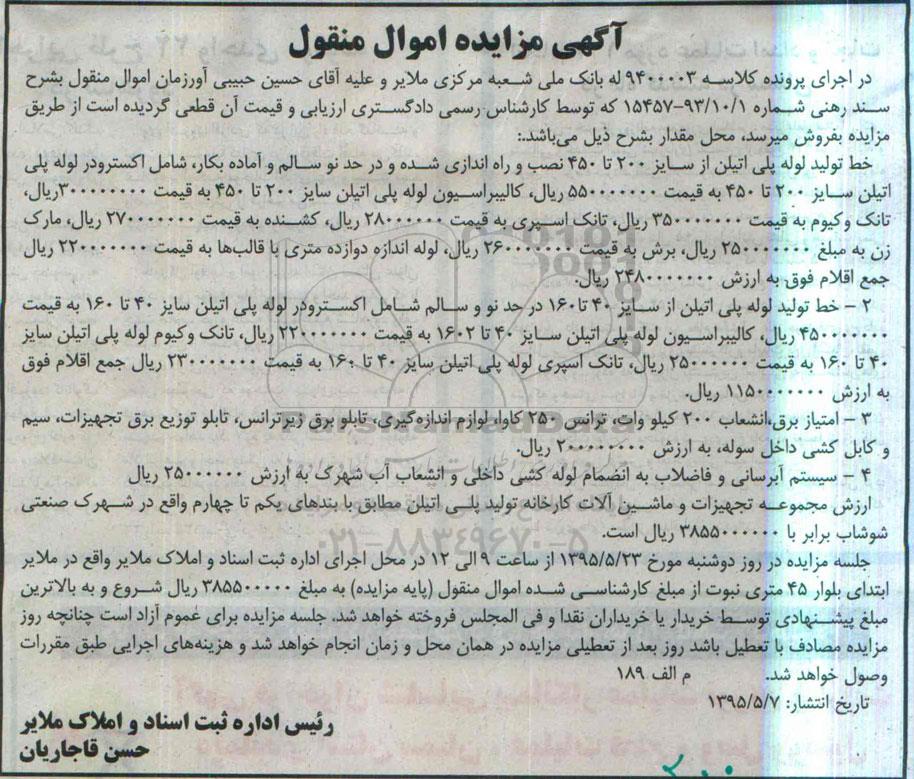 آگهی مزایده اموال منقول
در اجرای پرونده کلاسه ۹۴۰۰۰۰۳ له بانک ملی شعبه مرکزی ملایر و علیه آقای حسین حبیبی آورزمان اموال منقول بشرح
سند رهنی شماره ۱۵۴۵۷-۹۳/۱۰/۱ که توسط کارشناس رسمی دادگستری ارزیابی و قیمت آن قطعی گردیده است از طریق
مزایده بفروش میرسد، محل مقدار بشرح ذیل می‌باشد:
خط تولید لوله پلی اتیلن از سایز ۲۰۰ تا ۴۵۰ نصب و راه اندازی شده و در حد نو سالم و آماده بکار، شامل اکسترودر لوله پلی
اتیلن سایز ۲۰۰ تا ۴۵۰ به قیمت ۵۵۰۰۰۰۰۰۰۰ ریال، کالیبراسیون لوله پلی اتیلن سایز ۲۰۰ تا ۴۵۰ به قیمت ۳۰۰۰۰۰۰۰۰۰ریال،
تانک وکیوم به قیمت ۳۵۰۰۰۰۰۰۰۰ ریال، تانک اسپری به قیمت ۲۸۰۰۰۰۰۰۰۰ ریال، کشنده به قیمت ۲۷۰۰۰۰۰۰۰۰ ریال، مارک
زن به مبلغ ۲۵۰۰۰۰۰۰۰۰ ریال، برش به قیمت ۲۶۰۰۰۰۰۰۰۰ ریال، لوله اندازه دوازده متری با قالب‌ها به قیمت ۲۲۰۰۰۰۰۰۰۰ ریال
جمع اقلام فوق به ارزش ۲۴۸۰۰۰۰۰۰۰۰ ریال.
۲ – خط تولید لوله پلی اتیلن از سایز ۴۰ تا۱۶۰ در حد نو و سالم شامل اکسترودر لوله پلی اتیلن سایز ۴۰ تا ۱۶۰ به قیمت
۴۵۰۰۰۰۰۰۰۰ ریال، کالیبراسیون لوله پلی اتیلن سایز ۴۰ تا ۱۶۰۲ به قیمت ۲۲۰۰۰۰۰۰۰۰ ریال، تانک وکیوم لوله پلی اتیلن سایز
۴۰ تا ۱۶۰ به قیمت ۲۵۰۰۰۰۰۰۰۰ ریال، تانک اسپری لوله پلی اتیلن سایز ۴۰ تا ۱۶۰ به قیمت ۲۳۰۰۰۰۰۰۰۰ ریال جمع اقلام فوق
به ارزش ۱۱۵۰۰۰۰۰۰۰۰ ریال.
۳ – امتیاز برق،انشعاب ۲۰۰ کیلو وات، ترانس ۲۵۰ کاوا، لوازم اندازه‌گیری، تابلو برق زیرترانس، تابلو توزیع برق تجهیزات، سیم
و کابل کشی داخل سوله، به ارزش ۲۰۰۰۰۰۰۰۰۰ ریال.
۴ – سیستم آبرسانی و فاضلاب به انضمام لوله کشی داخلی و انشعاب آب شهرک به ارزش ۲۵۰۰۰۰۰۰۰ ریال
ارزش مجموعه تجهیزات و ماشین آلات کارخانه تولید پلی اتیلن مطابق با بندهای یکم تا چهارم واقع در شهرک صنعتی
شوشاب برابر با ۳۸۵۵۰۰۰۰۰۰۰ ریال است.
جلسه مزایده در روز دوشنبه مورخ ۱۳۹۵/۵/۲۳ از ساعت ۹ الی ۱۲ در محل اجرای اداره ثبت اسناد و املاک ملایر واقع در ملایر
ابتدای بلوار ۴۵ متری نبوت از مبلغ کارشناسی شده اموال منقول (پایه مزایده) به مبلغ ۳۸۵۵۰۰۰۰۰۰۰ ریال شروع و به بالاترین
مبلغ پیشنهادی توسط خریدار یا خریداران نقدا و فی المجلس فروخته خواهد شد. جلسه مزایده برای عموم آزاد است چنانچه روز
مزایده مصادف با تعطیل باشد روز بعد از تعطیلی مزایده در همان محل و زمان انجام خواهد شد و هزینه‌های اجرایی طبق مقررات
وصول خواهد شد. م الف ۱۸۹
تاریخ انتشار: ۱۳۹۵/۵/۷
رئیس اداره ثبت اسناد و املاک ملایر
حسن قاجاریان